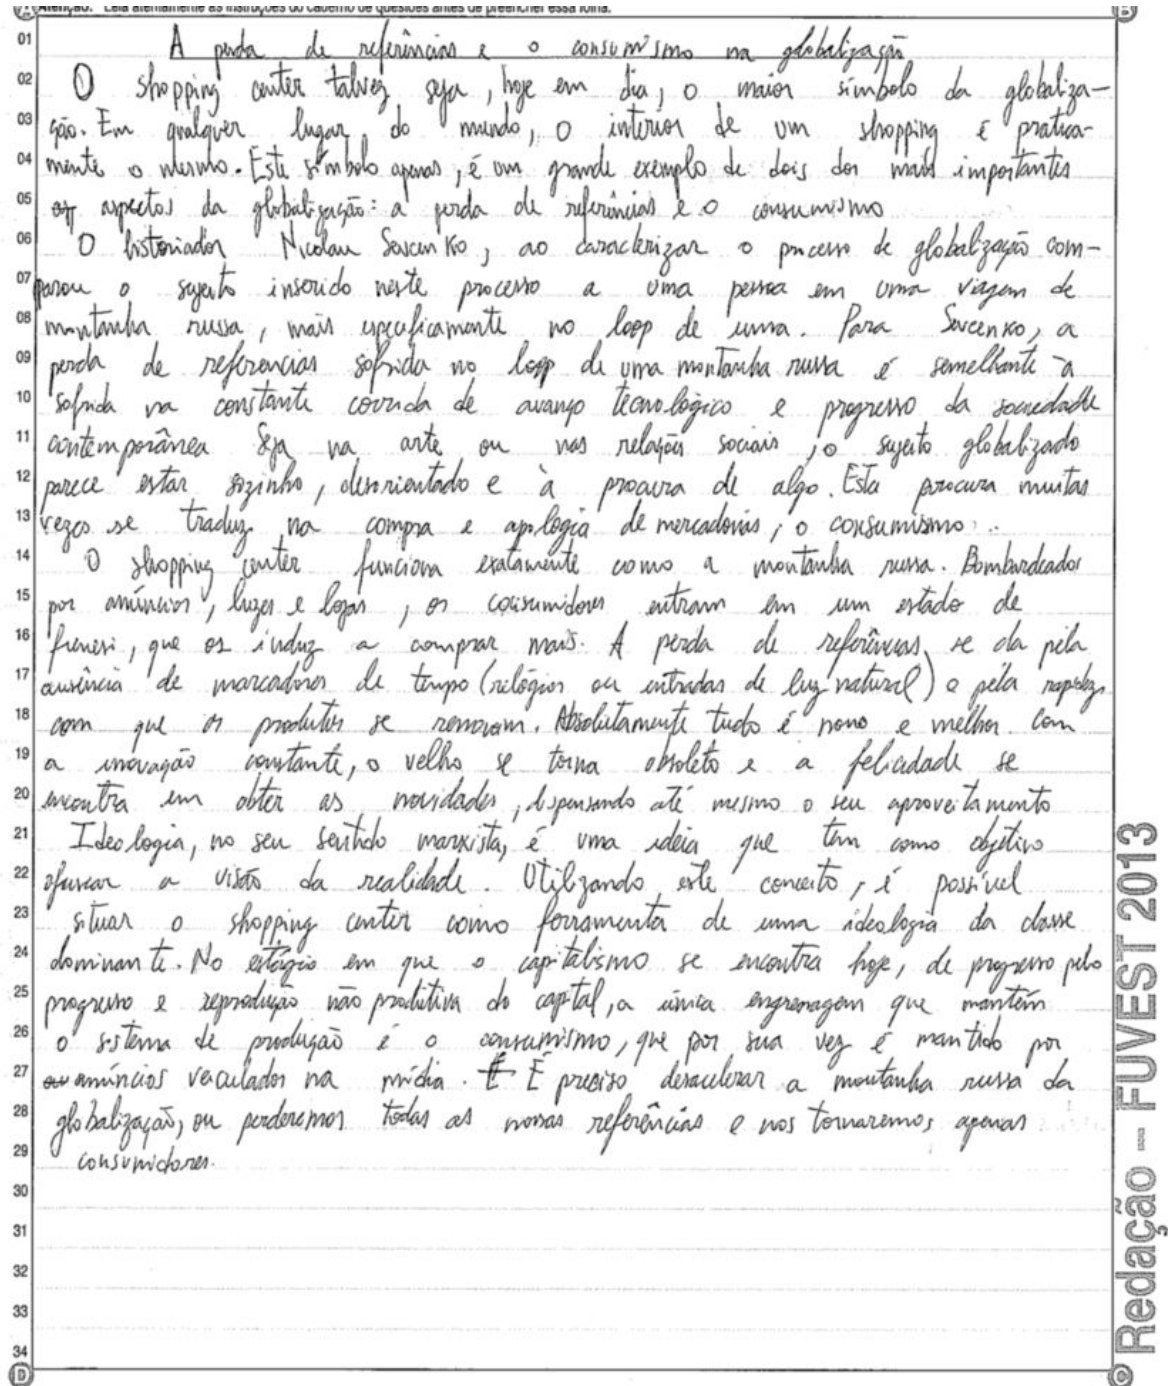 Atenção: Leia atentamente as instruções do caderno de questões antes de preencher essa folha.
B
01 A perda de referências e o consumismo na globalização
02 O shopping center talvez seja, hoje em dia, o maior símbolo da globaliza-
03 ção. Em qualquer lugar do mundo, o interior de um shopping é pratica-
04 mente o mesmo. Este símbolo apenas, é um grande exemplo de dois dos mais importantes
05 aspectos da globalização: a perda de referências e o consumismo
06 O historiador Nicolau Sevcenko, ao caracterizar o processo de globalização com-
07 parou o sujeito inserido neste processo a uma pessoa em uma viagem de
08 montanha russa, mais especificamente no loop de uma. Para Sevcenko, a
09 perda de referencias sofrida no loop de uma montanha russa é semelhante à
10 sofrida na constante corrida de avanço tecnológico e progresso da sociedade
11 contemporânea Seja na arte ou nas relações sociais, o sujeito globalizado
12 parece estar sozinho, desorientado e à procura de algo. Esta procura muitas
13 vezes se traduz na compra e apologia de mercadorias, o consumismo.
14 O shopping center funciona exatamente como a montanha russa. Bombardeados
15 por anúncios, luzes e lojas, os consumidores entram em um estado de
16 frenesi, que os induz a comprar mais. A perda de referências se da pela
17 ausência de marcadores de tempo (relógios ou entradas de luz natural) e pela rapidez
18 com que os produtos se renovam. Absolutamente tudo é novo e melhor. Com
19 a inovação constante, o velho se torna obsoleto e a felicidade se
20 encontra em obter as novidades, dispensando até mesmo o seu aproveitamento
21 Ideologia, no seu sentido marxista, é uma idéia que tem como objetivo
22 ofuscar a visão da realidade. Utilizando este conceito, é possível
23 situar o shopping center como ferramenta de uma ideologia da classe
24 dominante. No estágio em que o capitalismo se encontra hoje, de progresso pelo
25 progresso e reprodução não produtiva do capital, a única engrenagem que mantém
26 o sistema de produção é o consumismo, que por sua vez é mantido por
27 anúncios veiculados na mídia. É preciso desacelerar a montanha russa da
28 globalização, ou perderemos todas as nossas referências e nos tornaremos apenas
29 consumidores.
30
31
32
33
34
D
C
Redação – FUVEST 2013